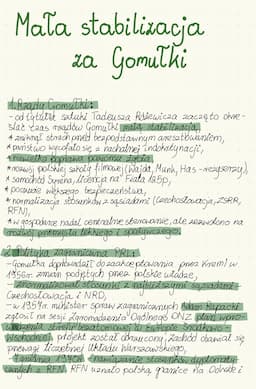 Mała stabilizacja
za Gomułki
1. Rządy Gomułki:
- od tytułu sztuki Tadeusza Różewicza zaczęto okre-
ślać czas rządów Gomułki małą stabilizacją,
* zniknął strach przed bezpodstawnym aresztowaniem,
* państwo wycofało się z nachalnej indoktrynacji,
* niewielka poprawa poziomu życia,
* rozwój polskiej szkoły filmowej (Wajda, Munk, Has - reżyserzy),
* samochód Syrena, licencja na Fiata 125p,
* poczucie większego bezpieczeństwa,
* normalizacja stosunków z sąsiadami (Czechosłowacja, ZSRR,
RFN),
* w gospodarce nadal centralne sterowanie, ale zezwolono na
rozwój przemysłu lekkiego i spożywczego.
2. Polityka zagraniczna PRL:
- Gomułka doprowadził do zaakceptowania przez Kreml w
1956r. zmian podjętych przez polskie władze,
- znormalizował stosunki z najbliższymi sąsiadami -
Czechosłowacją i NRD,
- w 1957r. minister spraw zagranicznych Adam Rapacki
zgłosił na sesji Zgromadzenia Ogólnego ONZ plan wpro-
wadzenia strefy bezatomowej w Europie Środkowo-
Wschodniej, projekt został odrzucony, Zachód obawiał się
przewagi liczebnej Układu Warszawskiego,
- 7 grudnia 1970r. - nawiązanie stosunków dyplomaty-
cznych z RFN. RFN uznało polską granicę na Odrze i